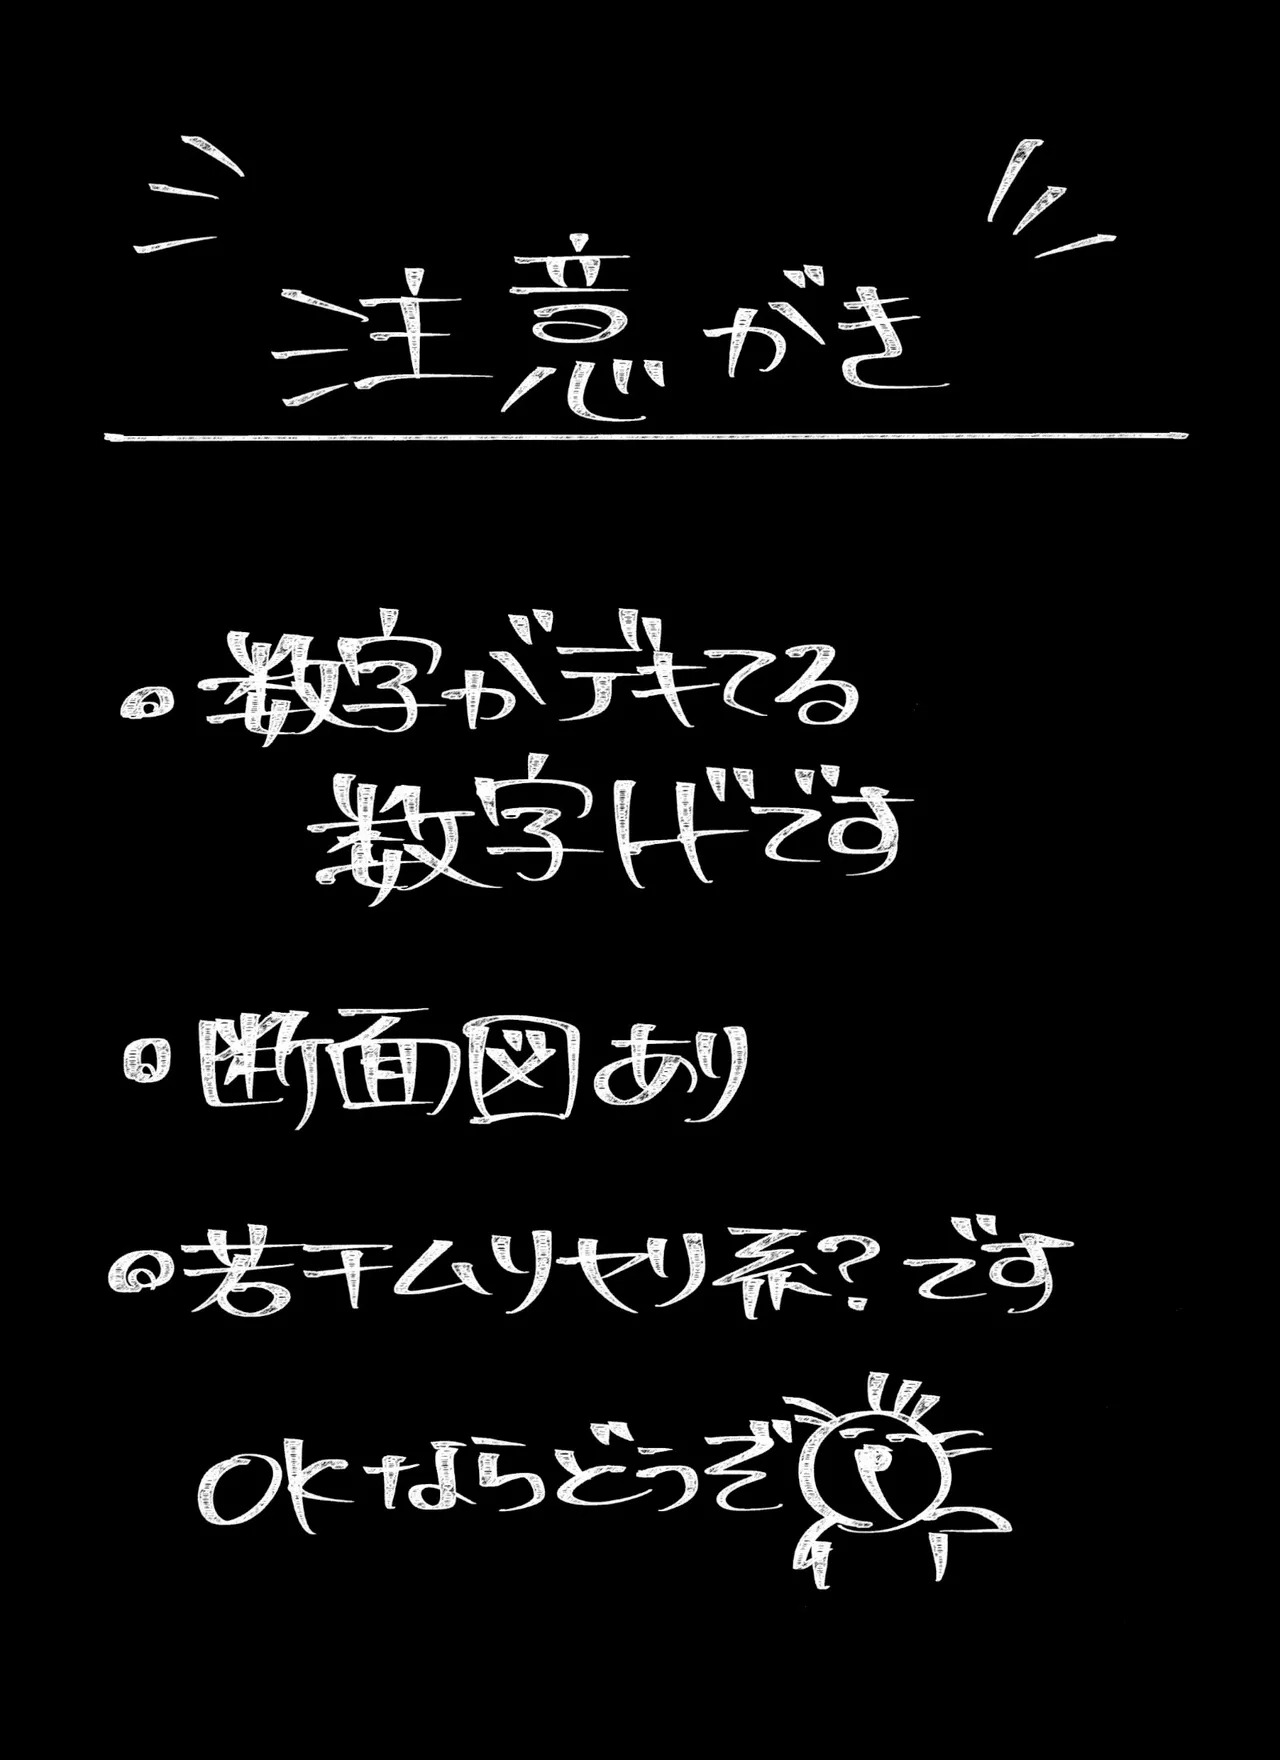 注意がき
・数字がデキてる
数字ばです
・断面図あり
・若干ムリヤリ系?です
OKならどうぞ